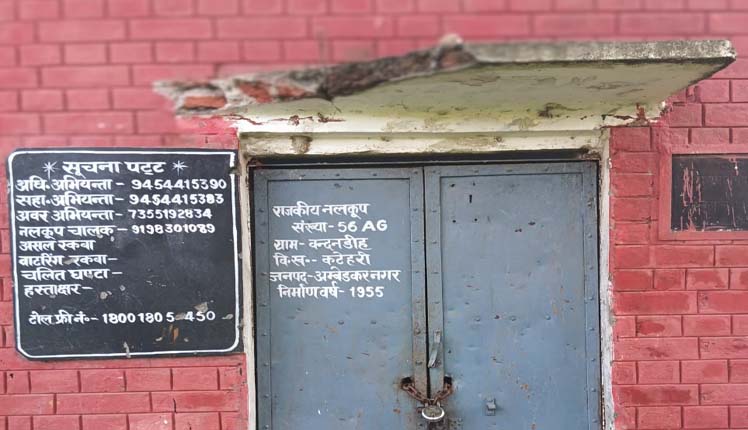 सूचना पट्ट
अधि-अभियन्ता - 9454415390
सहा-अभियन्ता - 9454415383
अवर अभियन्ता - 7355192834
नलकूप चालक - 9198301089
असल रकबा
वाटरिंग रकबा -
चलित घण्टा -
हस्ताक्षर -
टोल फ्री नं०- 1800 180 5 - 450
राजकीय नलकूप
संख्या - 56 AG
ग्राम - वन्दनडीह
वि.ख. - कटेहरी
जनपद - अम्बेडकर नगर
निर्माण वर्ष - 1955